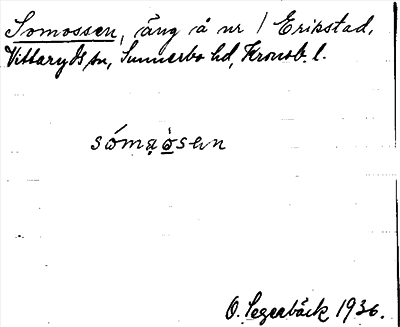 Somossen, äng å nr 1 Erikstad,
Vittaryds sn, Sunnerbo hd, Kronob. l.
sómạòsen
O. Segerbäck 1936.